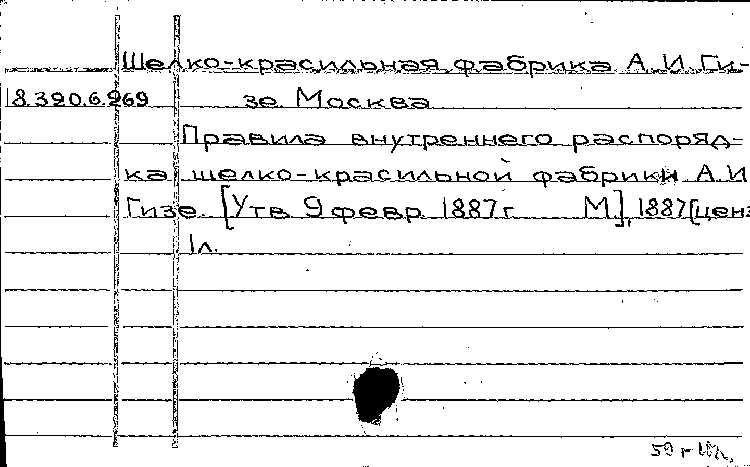 Шелко-красильная фабрика А.И.Ги-
18.320.6.269 зе. Москва
Правила внутреннего распоряд=
ка шелко-красильной фабрики А.И
Гизе. [Утв. 9 февр. 1887 г. М], 1887 [ценз
1л.
59 г